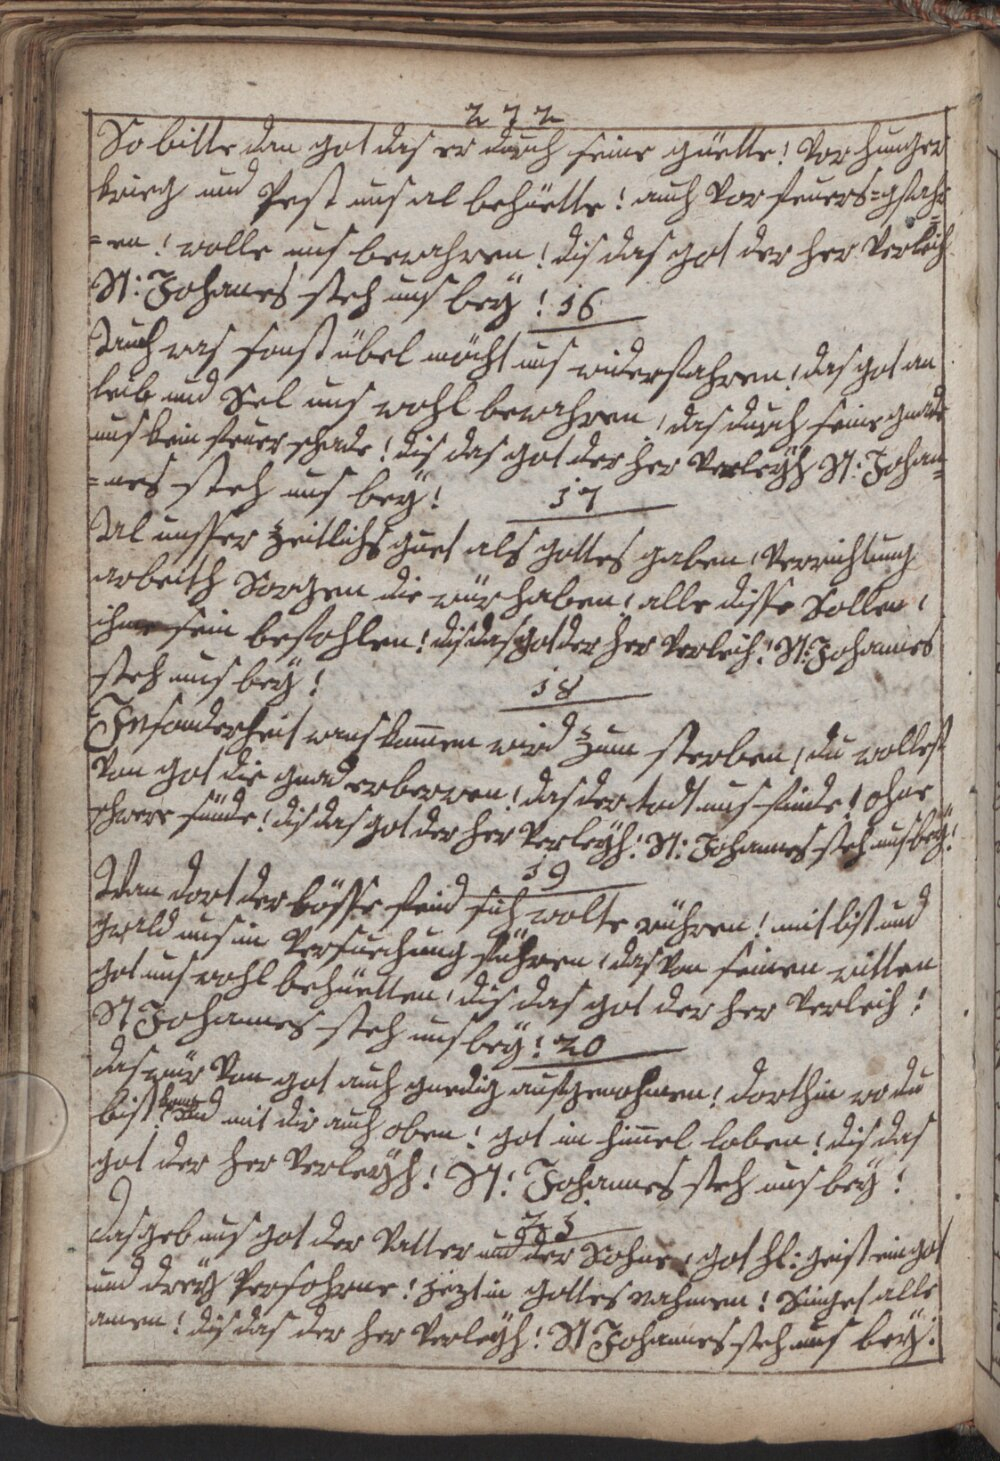 272
So bitte dan got das er durch seine güette! Vor hunger
krieg und Pest uns al behüette! auch Vor feuers=gfahr
=en! wolle uns bewahren! dis das got der her Verleich
St: Johanes steh uns beÿ! 16
Auch was sonst übel möcht uns widerfahren! das got an
leib und Sel uns wohl bewahren, das durch seine gnade
uns kein feuer schade! dis das got der her Verleÿh St: Johan=
=nes steh uns beÿ! 17
Al unsser zeitlichs guet als gottes gaben, Verrichtung
arbeith Sorgen die wür haben! alle disse Sollen,
ihme sein befohlen! dis das got der her Verleich! St: Johannes
steh uns beÿ! 18
Insonderheit wans kommen wird zum sterben, du wollest
Von got die gnad erwerven! das der todt uns finde! ohne
schwere sünde! dis das got der her Verleÿh! St: Johannes steh uns beÿ!
19
Wan dort der bösse feind sich wolte rühren! mit list und
gwald uns in Versuechung führen, das Von seinen ritten
got uns wohl behüetten, dis das got der her Verleich!
St Johannes steh uns beÿ! 20
das wür Von got auch gnedig aufgenohmen! dorthin wo du
bist! und mit dir auch oben! got im himel loben! dis das
got der her Verleÿh! St: Johannes steh uns beÿ!
21
das geb uns got der Vatter und der Sohne, got hl: geist ein got
und dreÿ Persohnne! jezt in gottes nahmen! Singet alle
amen! dis das der her Verleÿh! St Johannes steh uns beÿ!